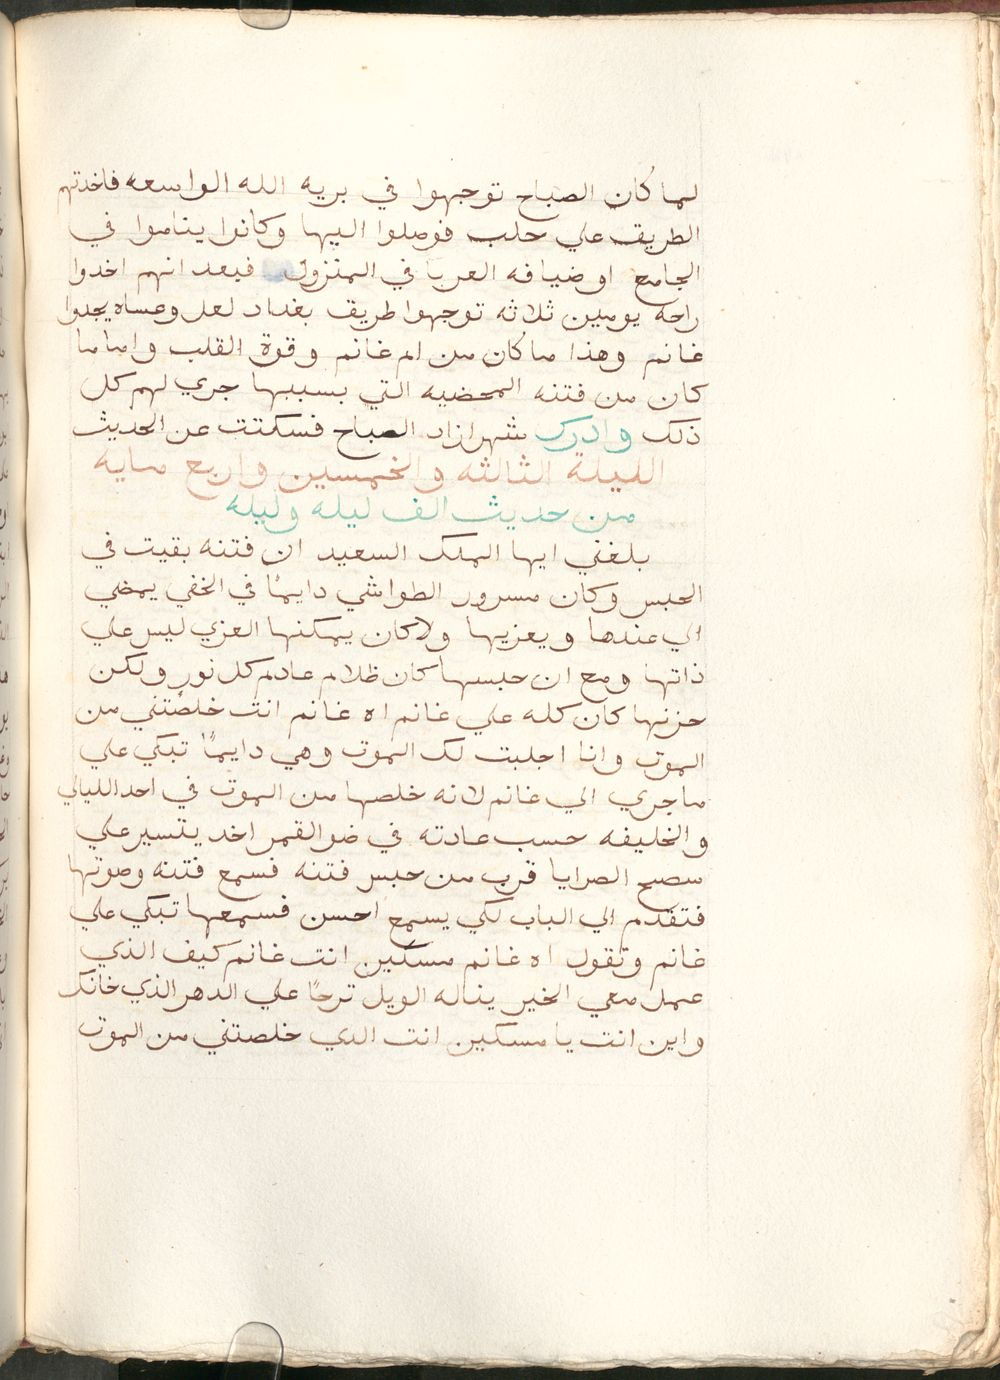 لما كان الصباح توجهوا في بريه الله الواسعه فاخذتهم
الطريق علي حلب فوصلوا اليها وكانوا يناموا في
الجامع او ضيافه العربا في المنزول فبعد انهم اخدوا
راحه يومين ثلاثه توجهوا طريق بغداد لعل وعساه يجدوا
غانم وهذا ما كان من ام غانم وقوة القلب واما ما
كان من فتنه المحضيه التي بسببها جري لهم كل
ذلك وادرك شهرازاد الصباح فسكتت عن الحديث
الليلة الثالثه والخمسين واربع مايه
من حديث الف ليله وليله
بلغني ايها الملك السعيد ان فتنه بقيت في
الحبس وكان مسرور الطواشي دايمًا في الخفي يمضي
الي عندها ويعزيها ولا كان يمكنها العزي ليس علي
ذاتها ومع ان حبسها كان ظلام عادم كل نور ولكن
حزنها كان كله علي غانم اه غانم انت خلصتني من
الموت وانا اجلبت لك الموت وهي دايمًا تبكي علي
ما جري الي غانم لانه خلصها من الموت في احد الليالي
والخليفه حسب عادته في ضو القمر اخد يتسير علي
سصح الصرايا قرب من حبس فتنه فسمع فتنه وصوتها
فتقدم الي الباب لكي يسمع احسن فسمعها تبكي علي
غانم وتقول اه غانم مسكين انت غانم كيف الذي
عمل معي الخير يناله الويل ترحًا علي الدهر الذي خانك
واين انت يا مسكين انت الدي خلصتني من الموت